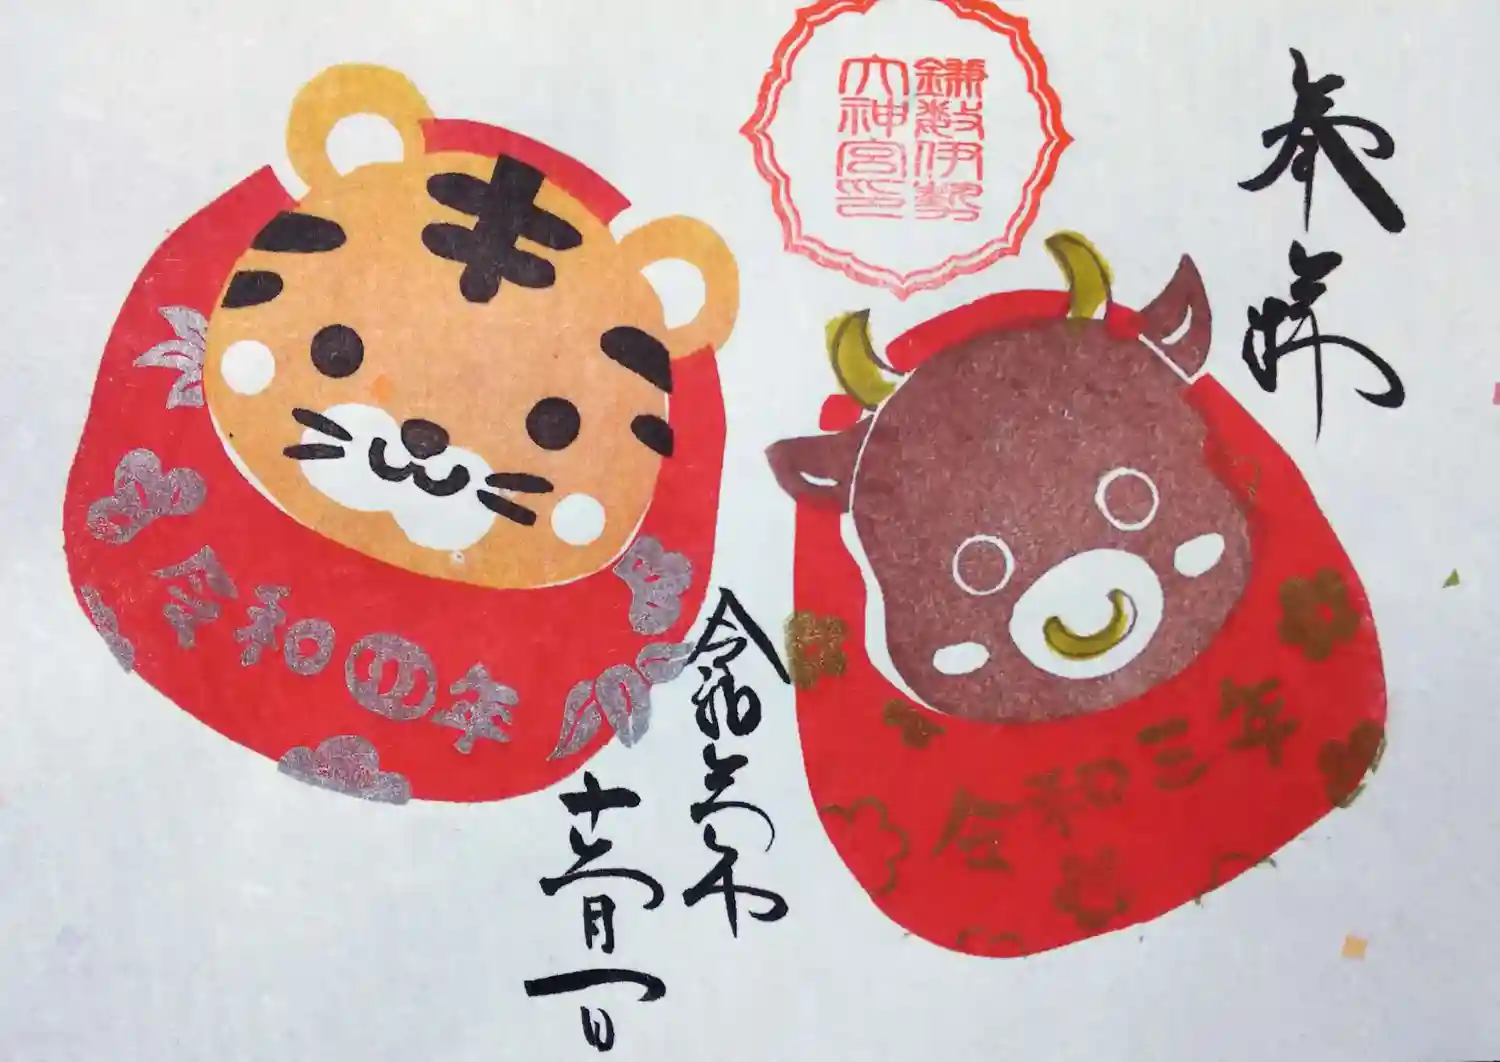 奉拝
鎌数伊勢
大神宮印
令和三年
令和四年
令和三年
十二月一日